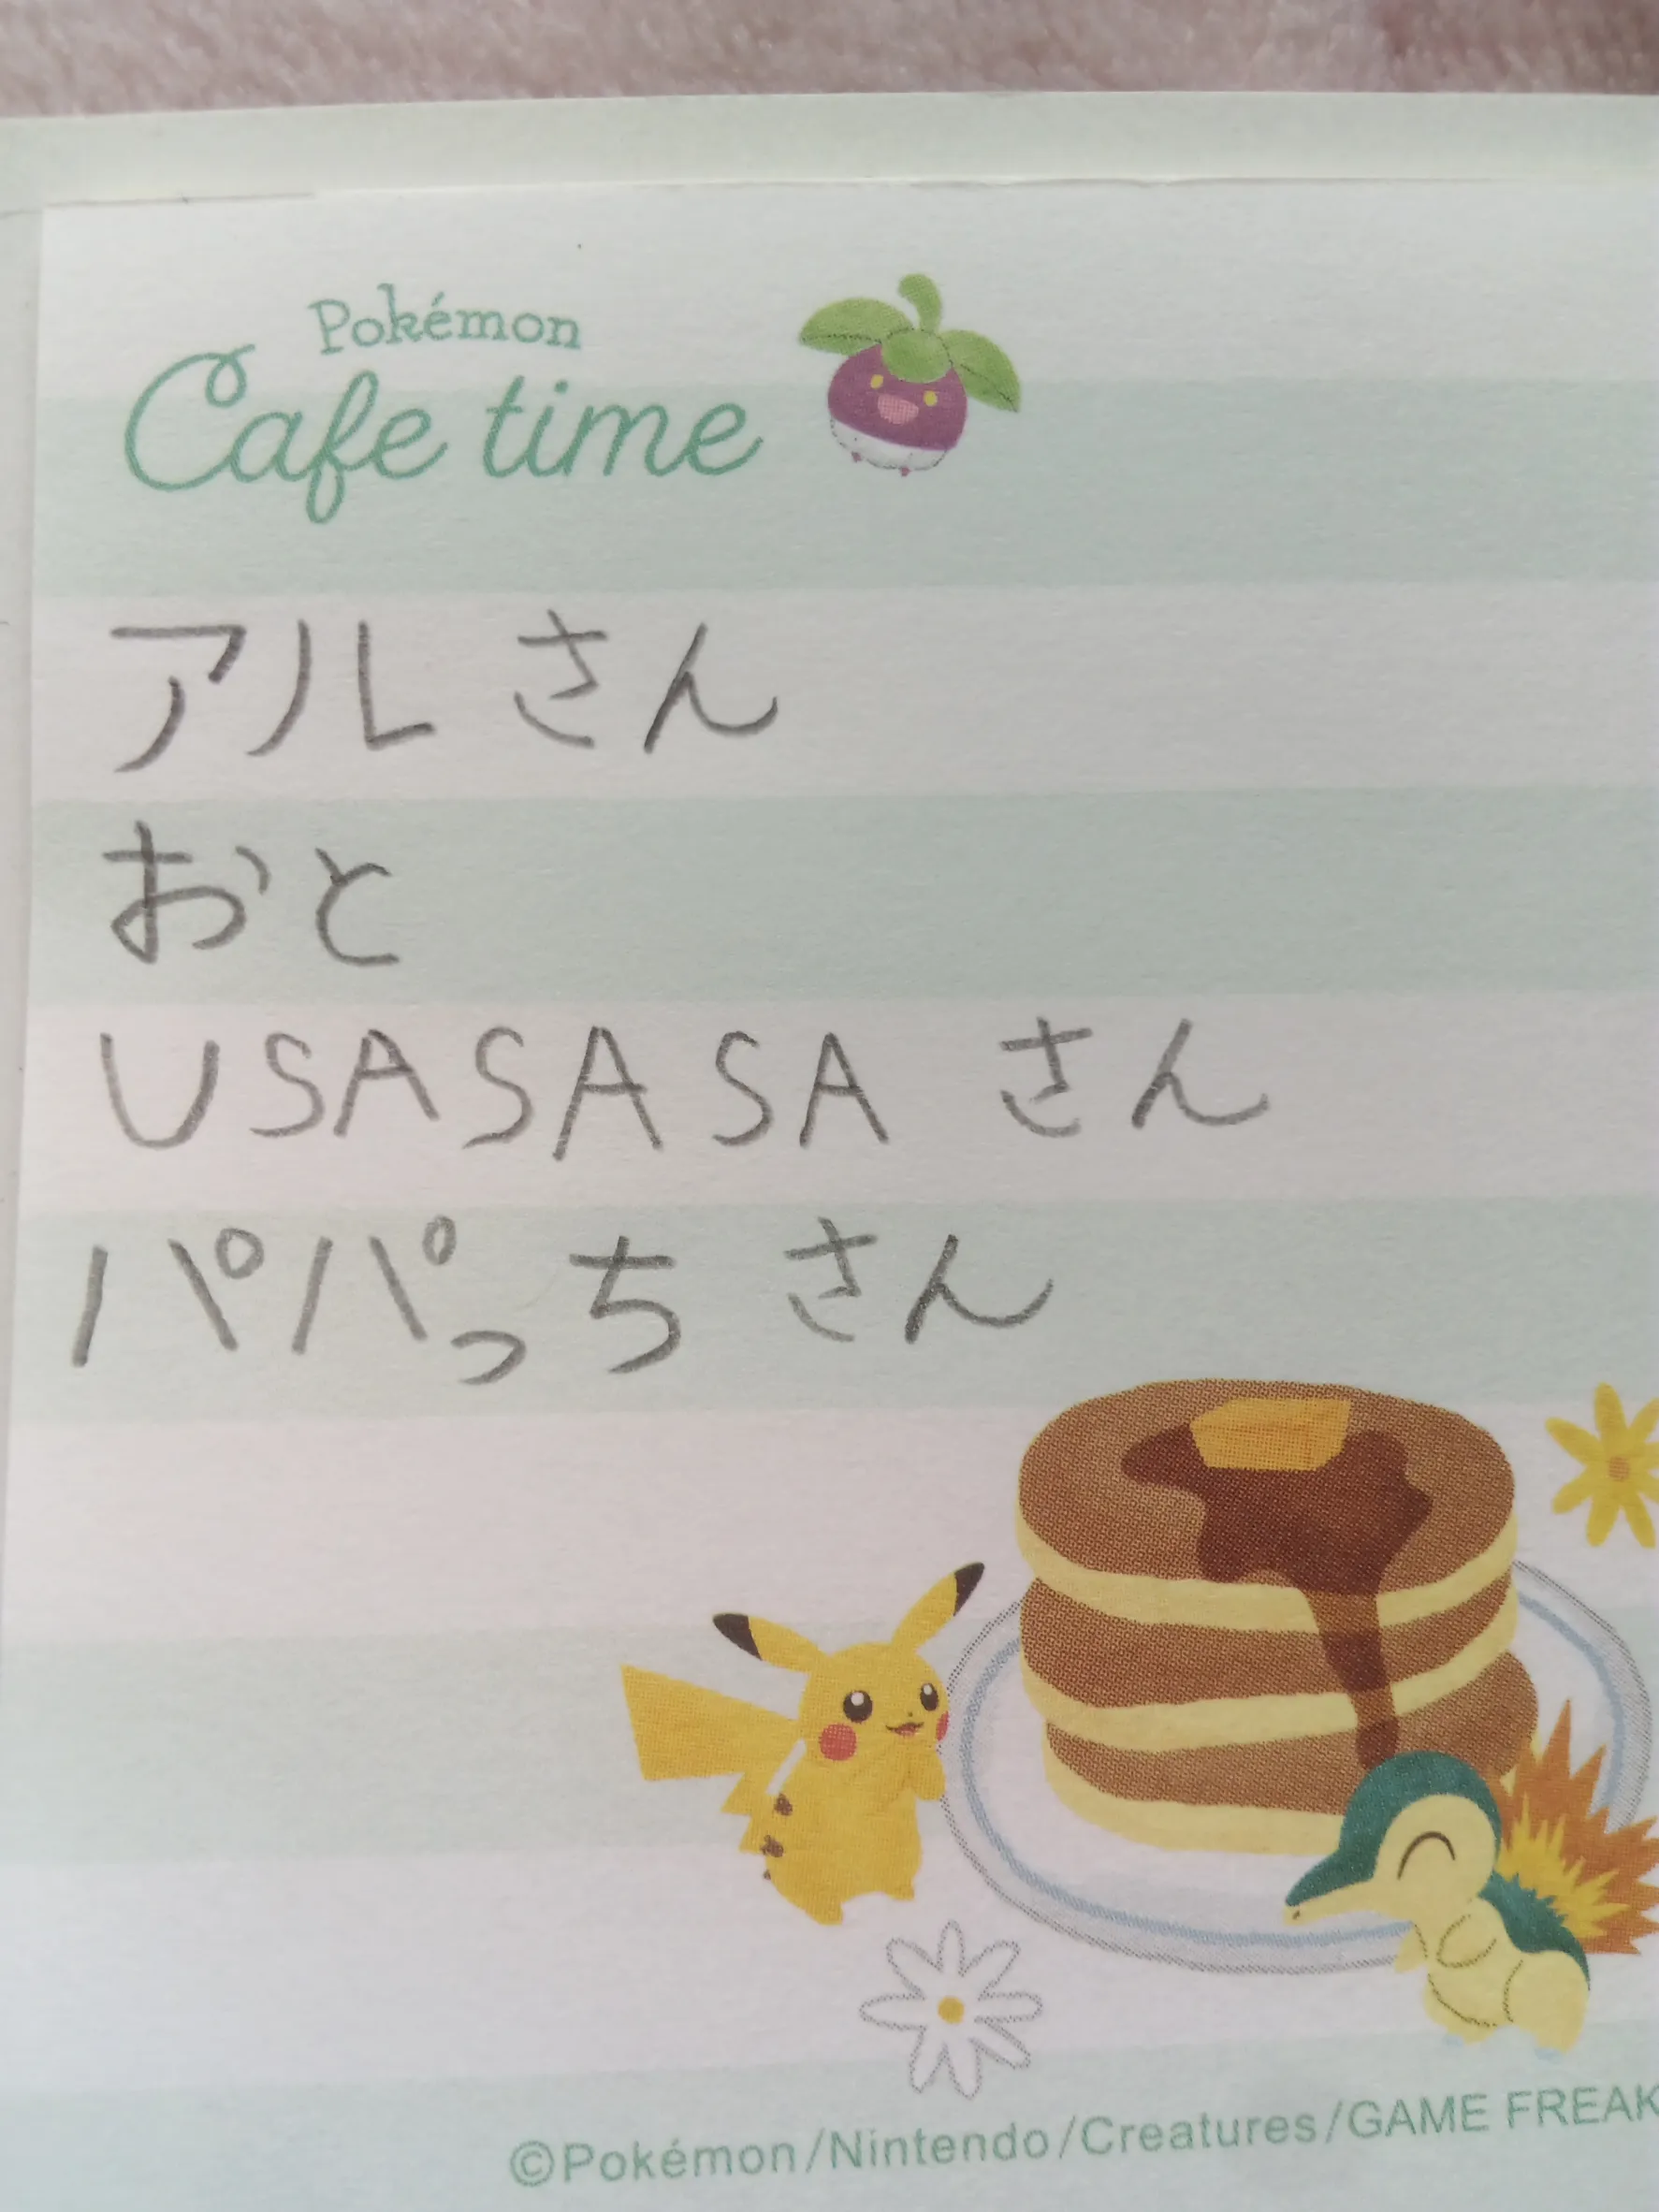 Pokémon
Cafe time
アルさん
おと
USASASA さん
パパっち さん
©Pokémon/Nintendo/Creatures/GAME FREAK